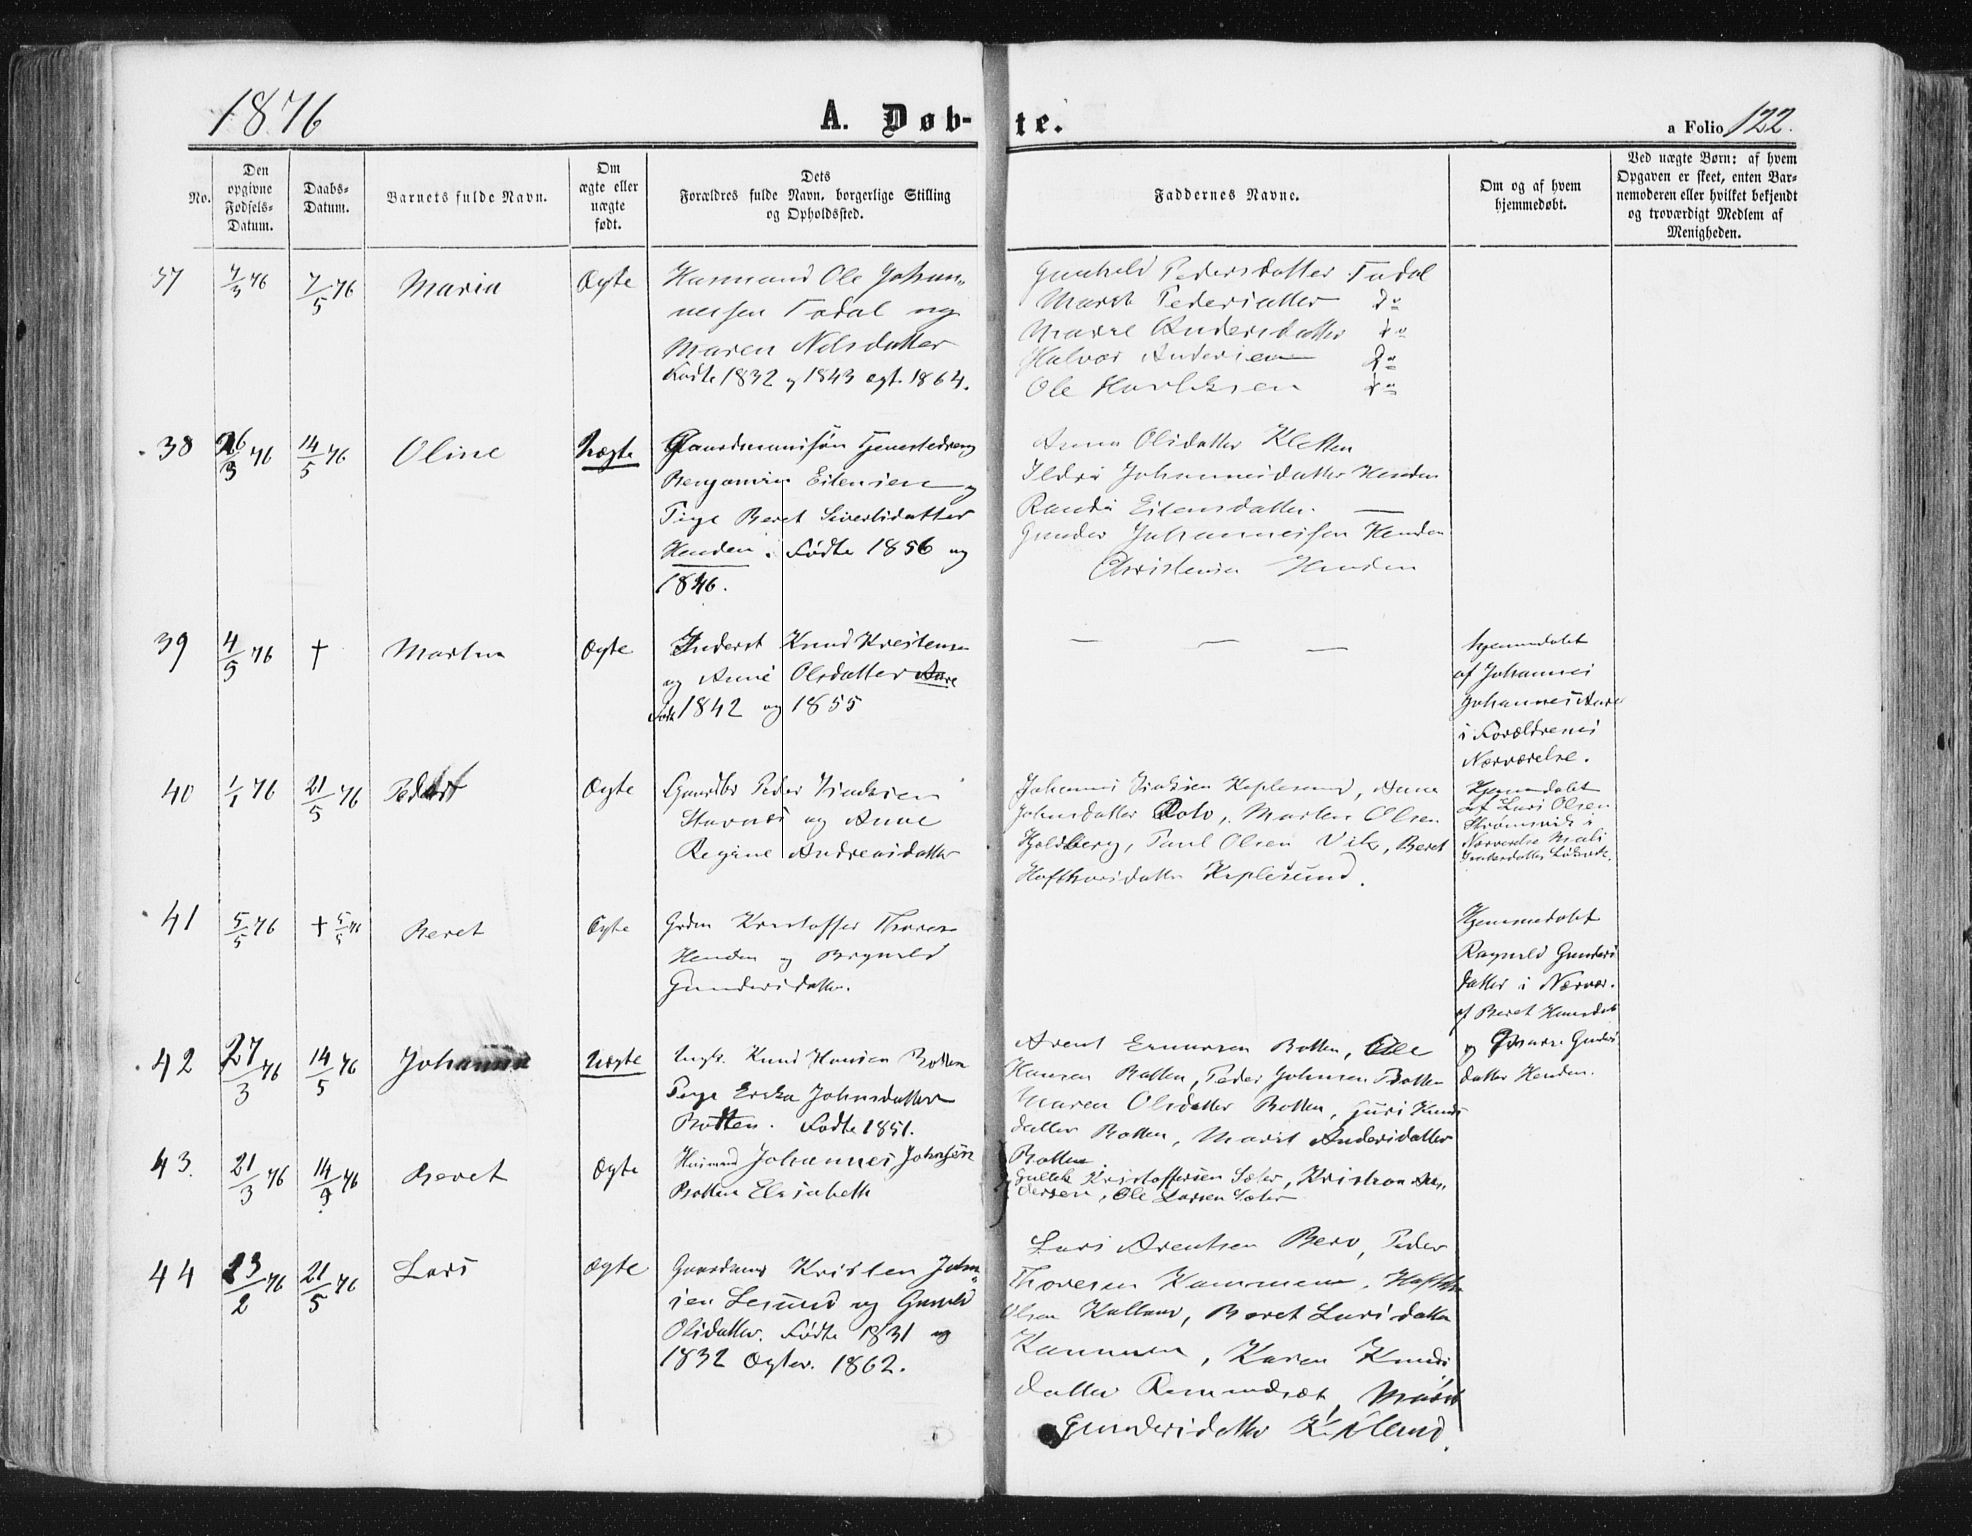 1876
A. Døb-te.
a Folio 122.
No.
Den opgivne Fødsels-Datum.
Daabs-Datum.
Barnets fulde Navn.
Om ægte eller uægte født.
Dets Forældres fulde Navn, borgerlige Stilling og Opholdssted.
Faddernes Navne.
Om og af hvem hjemmedøbt.
Ved uægte Børn: af hvem Opgaven er skeet, enten Barnemoderen eller hvilket bekjendt og troværdigt Medlem af Menigheden.
37 7/3 76 7/5 76 Maria Ægte
Husmand Ole Johan-
nessen Todal og
Maren Nilsdatter
Fødte 1832 og 1843 ægt. 1864.
Gunhild Pedersdatter Todal
Marit Pedersdatter do
Andersdatter do
Halvor Andersen do
Ole do
38 26/3 76 14/5 76 Oline Uægte
Gaardmandssøn
Benjamin Eilensen og
Pige Beret Sivertsdatter
Henden. Fødte 1856 og
1846.
Anna Olsdatter Kletten
Ildri Johannesdatter Henden
Randi Eilensdatter —
Gunder Johannessen Henden
Henden
39 4/5 76 † Ægte
Inderst Knud Kristensen
og Anne Olsdatter Aure
født 1842 og 1855
— — —
hjemmedøbt
af Johannes
Johannes Aure
i Forældrenes
Nærværelse.
40 1/1 76 21/5 76 Ægte
Peder
Stavnes og Anne
Regine Andreasdatter
Johannes Keplesund, Anne
Johnsdatter Rolv, Morten Olsen
Hjeldberg, Paul Olsen Vik, Beret
Hafthorsdatter Keplesund.
Hjemmedøbt
af Lars Olsen
Strømsvik i
Nærværelse
41 5/5 76 † 5/5 76 Beret Ægte
Grdm Kristoffer Thoresen
Henden og Ragnild
Gundersdatter.
Hjemmedøbt
Ragnild Gunders
datter i Nærvær.
af Beret Hansdat
og Gunders
datter Henden.
42 27/3 76 14/5 76 Johanna Uægte
Ungk. Knud Hansen Botten
Pige Johnsdatter
Botten. Fødte 1851.
Arent Botten, Ole
Hansen Botten, Peder Johnsen Botten
Maren Olsdatter Botten, Guri Knuds
datter Botten, Marit Andersdatter
Botten
43. 21/3 76 14/9 76 Beret Ægte
Husmand Johannes Johnsen
Botten Elisabeth
Gullik Kristoffersen Sæter, Kristian An-
dersen, Ole Larsen Sæter
44 23/2 76 21/5 76 Lars Ægte
Gaardmand Kristen John-
sen Lesund og Gunild
Olsdatter. Fødte 1831 og
1832 Ægtev. 1862.
Lars Arentsen Berv, Peder
Thoresen
Olsen Kalland, Beret Larsdatter
Karen Knuds
datter Remmdsæt, Marit
Gundersdatter